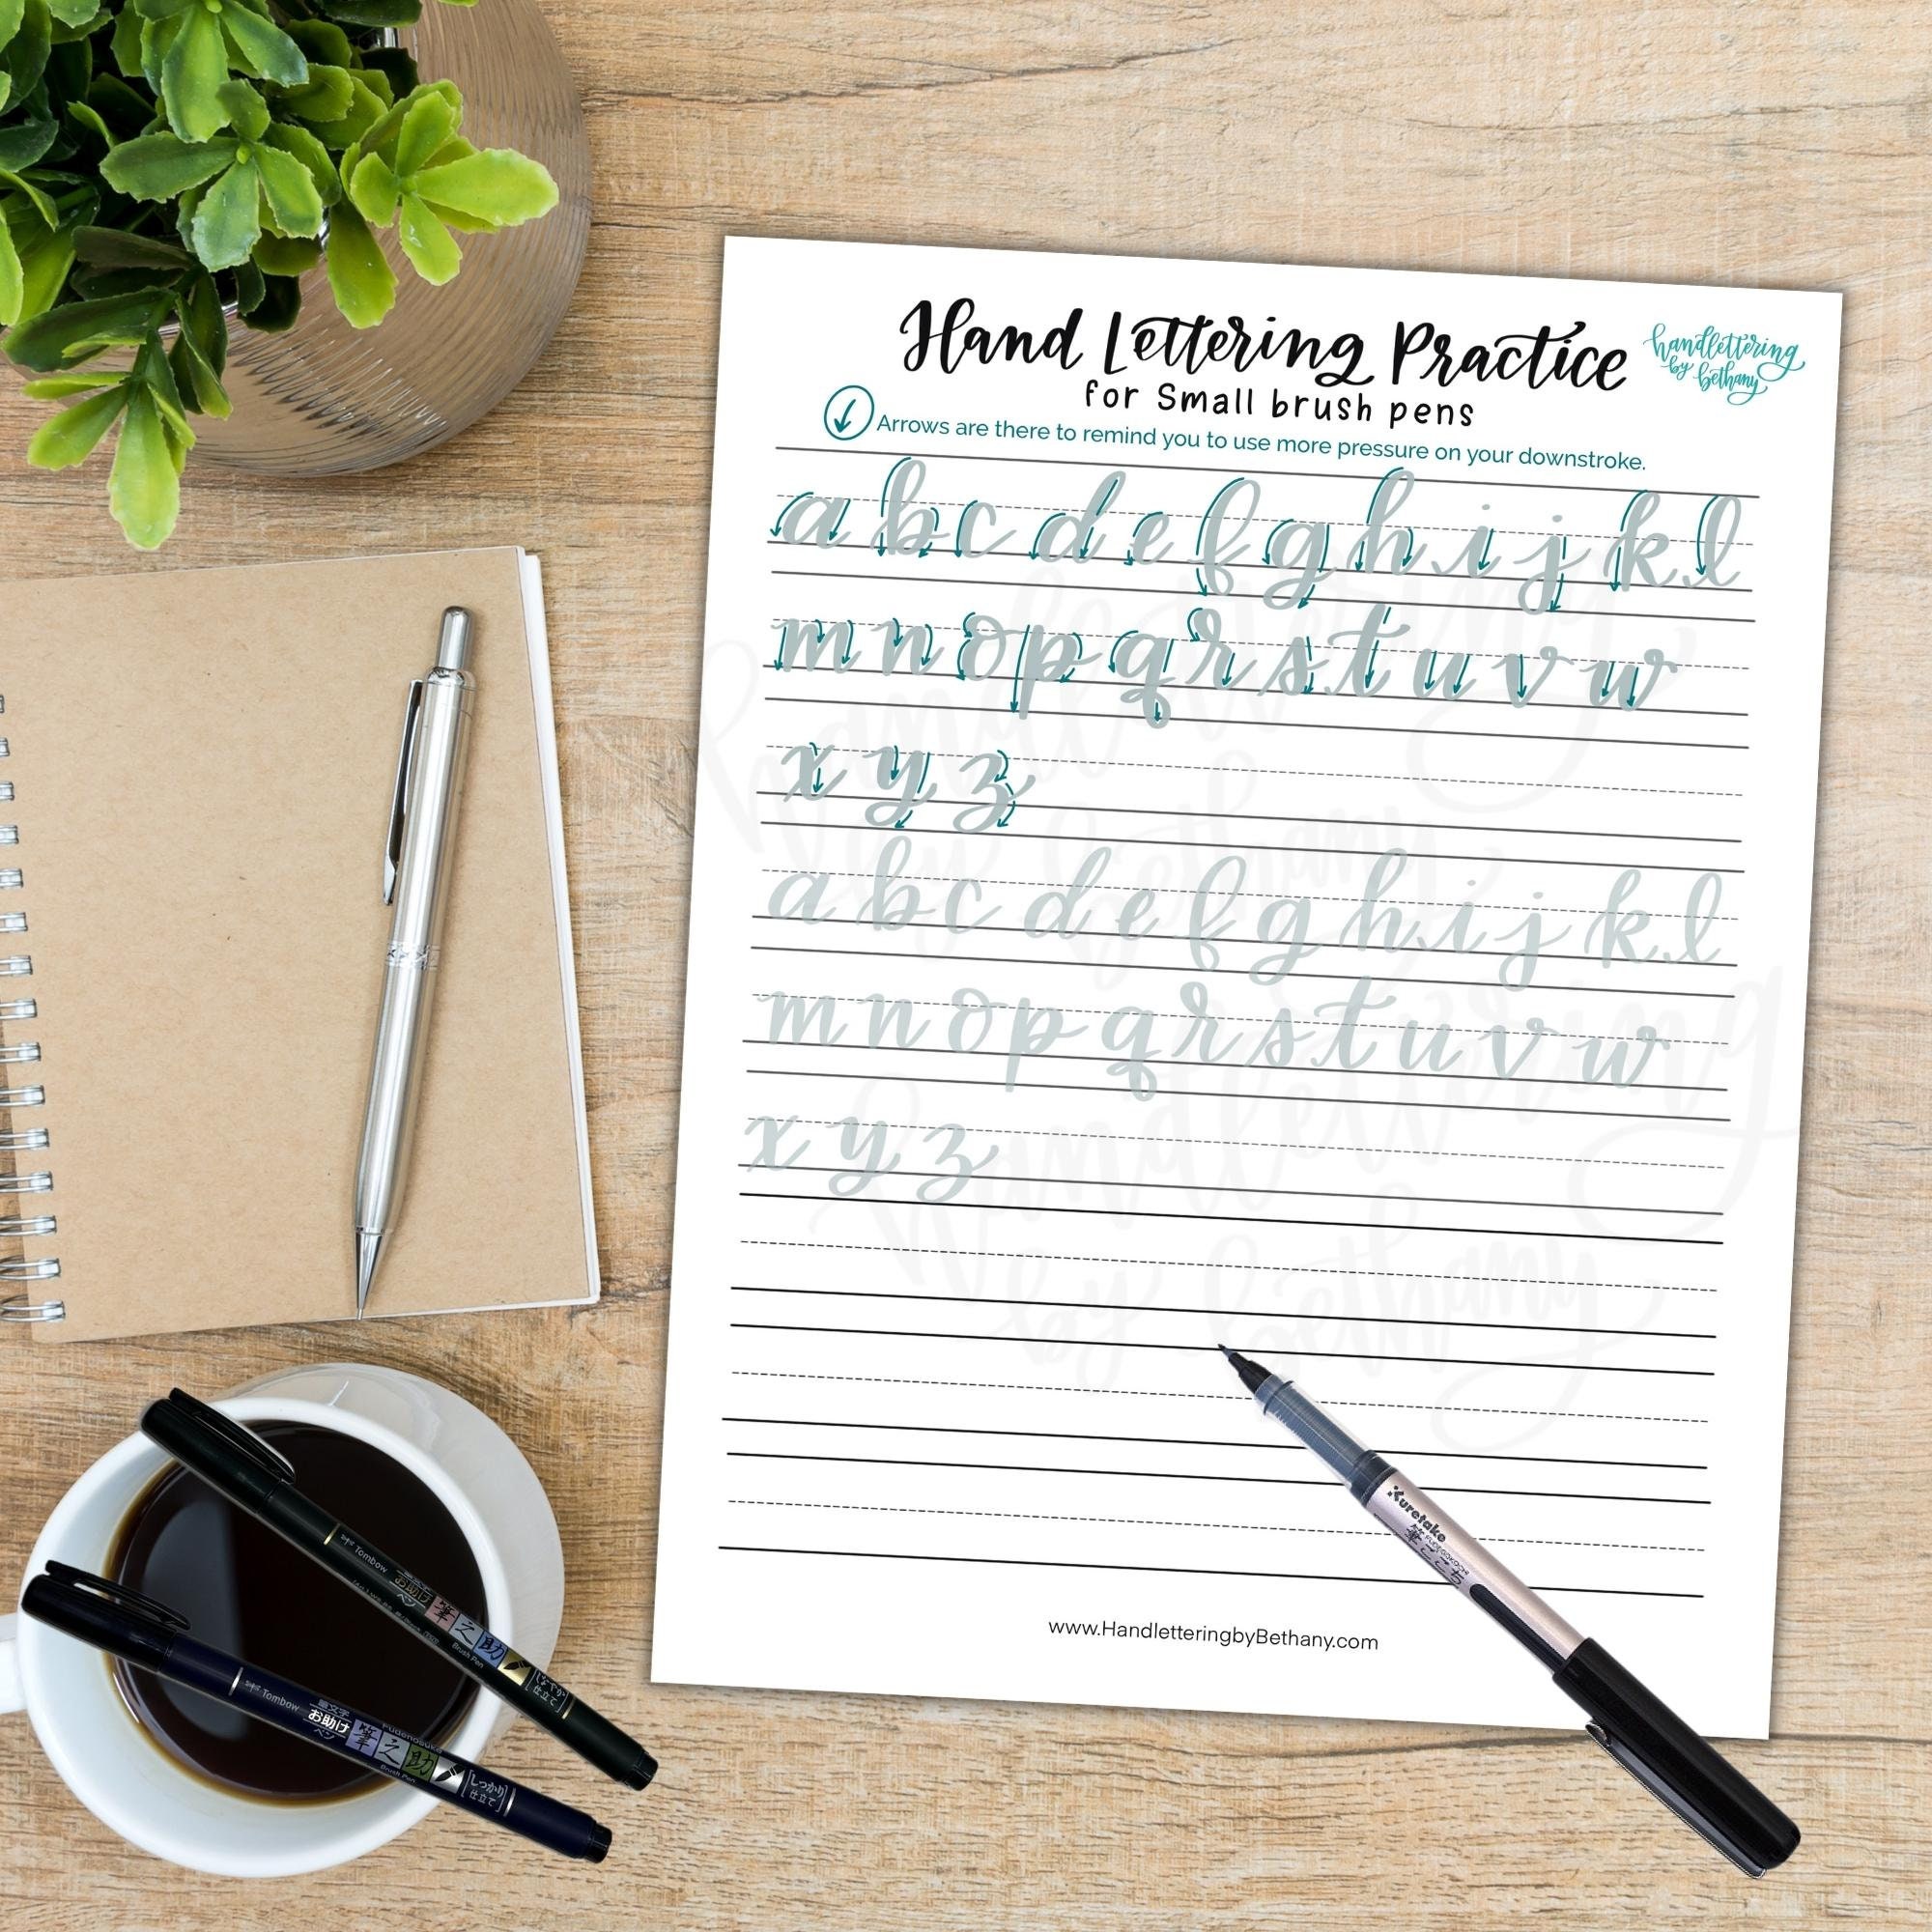 Hand Lettering Practice
handlettering
by bethany
for Small brush pens
Arrows are there to remind you to use more pressure on your downstroke.
a b c d e f g h i j k l
m n o p q r s t u v w
x y z
a b c d e f g h i j k l
m n o p q r s t u v w
x y z
handlettering
by bethany
handlettering
by bethany
www.HandletteringbyBethany.com
Kuretake
筆ごこち
Tombow
お助け
ペン
筆之助
Brush Pen
しなやか
仕立て
Tombow
お助け
ペン
Fudenosuke
筆之助
Brush Pen
しっかり
仕立て